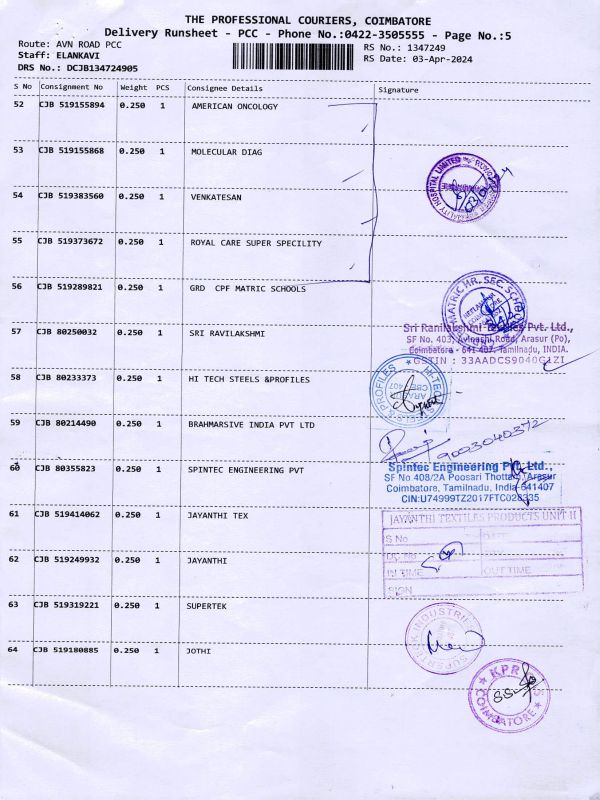 THE PROFESSIONAL COURIERS, COIMBATORE
Delivery Runsheet - PCC - Phone No.:0422-3505555 - Page No.:5
Route: AVN ROAD PCC
RS No.: 1347249
Staff: ELANKAVI
RS Date: 03-Apr-2024
DRS No.: DCJB134724905
S No Consignment No Weight PCS Consignee Details Signature
52 CJB 519155894 0.250 1 AMERICAN ONCOLOGY
53 CJB 519155868 0.250 1 MOLECULAR DIAG
54 CJB 519383560 0.250 1 VENKATESAN
55 CJB 519373672 0.250 1 ROYAL CARE SUPER SPECILITY
56 CJB 519289821 0.250 1 GRD CPF MATRIC SCHOOLS
57 CJB 80250032 0.250 1 SRI RAVILAKSHMI
Sri Ranilakshmi Textiles Pvt. Ltd.,
SF No. 403, Avinashi Road, Arasur (Po),
Coimbatore - 641 407, Tamilnadu, INDIA.
GSTIN : 33AADCS9040G1ZI
58 CJB 80233373 0.250 1 HI TECH STEELS &PROFILES
59 CJB 80214490 0.250 1 BRAHMARSIVE INDIA PVT LTD
9003040372
60 CJB 80355823 0.250 1 SPINTEC ENGINEERING PVT
Spintec Engineering Pvt. Ltd.,
SF No.408/2A Poosari Thottam, Arasur
Coimbatore, Tamilnadu, India-641407
CIN:U74999TZ2017FTC028335
61 CJB 519414062 0.250 1 JAYANTHI TEX
JAYANTHI TEXTILES PRODUCTS UNIT II
S No DATE
IN TIME OUT TIME
SIGN
62 CJB 519249932 0.250 1 JAYANTHI
63 CJB 519319221 0.250 1 SUPERTEK
64 CJB 519180885 0.250 1 JOTHI
KPR
COIMBATORE